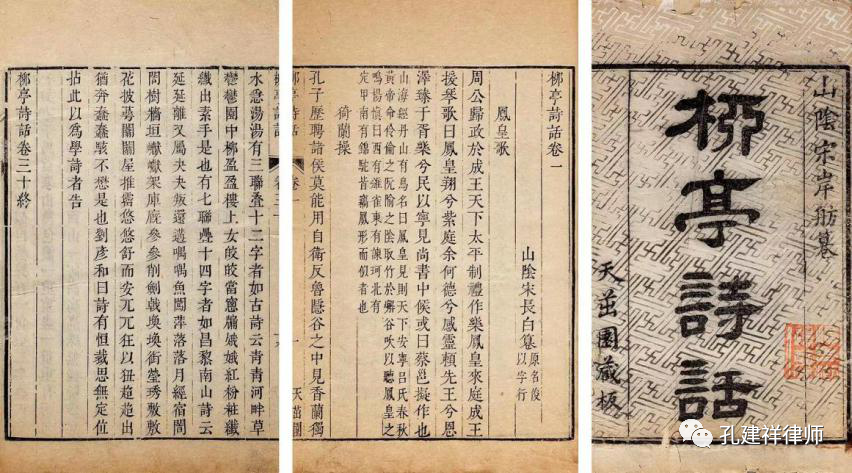 山陰宋岸舫纂
柳亭詩話
天茁園藏板
孔建祥律师
柳亭詩話卷一
山陰宋長白纂 原名俊以字行
鳳皇歌
周公歸政於成王天下太平制禮作樂鳳皇來庭成王
援琴歌曰鳳皇翔兮紫庭余何德兮感靈賴先王兮恩
澤臻于胥樂兮民以寧見尚書中候或曰蔡邕擬作也
山海經丹山有鳥名曰鳳皇見則天下安寧呂氏春秋
黃帝命伶倫之阮隃之陰取竹於嶰谷吹以聽鳳皇之
鳴楊慎曰西有雒雀東有諫珂北有
定甲南有錦駝皆竊鳳形而似者也
猗蘭操
孔子歷聘諸侯莫能用自衛反魯隱谷之中見香蘭獨
柳亭詩話 卷一 一 天茁園
柳亭詩話 卷三十
水急湯湯有三聯叠十二字者如古詩云青青河畔草
鬱鬱園中柳盈盈樓上女皎皎當窻牖娥娥紅粉粧纖
纖出素手是也有七聯疊十四字者如昌黎南山詩云
延延離又屬夬夬叛還遘喁喁魚闖萍落落月經宿誾
誾樹墻垣巘巘架庫廐參參削劍戟煥煥銜瑩琇敷敷
花披萼闟闟屋摧霤悠悠舒而安兀兀狂以狃超超出
猶奔蠢蠢駭不懋是也劉彥和曰詩有恒裁思無定位
拈此以為學詩者告
柳亭詩話卷三十終